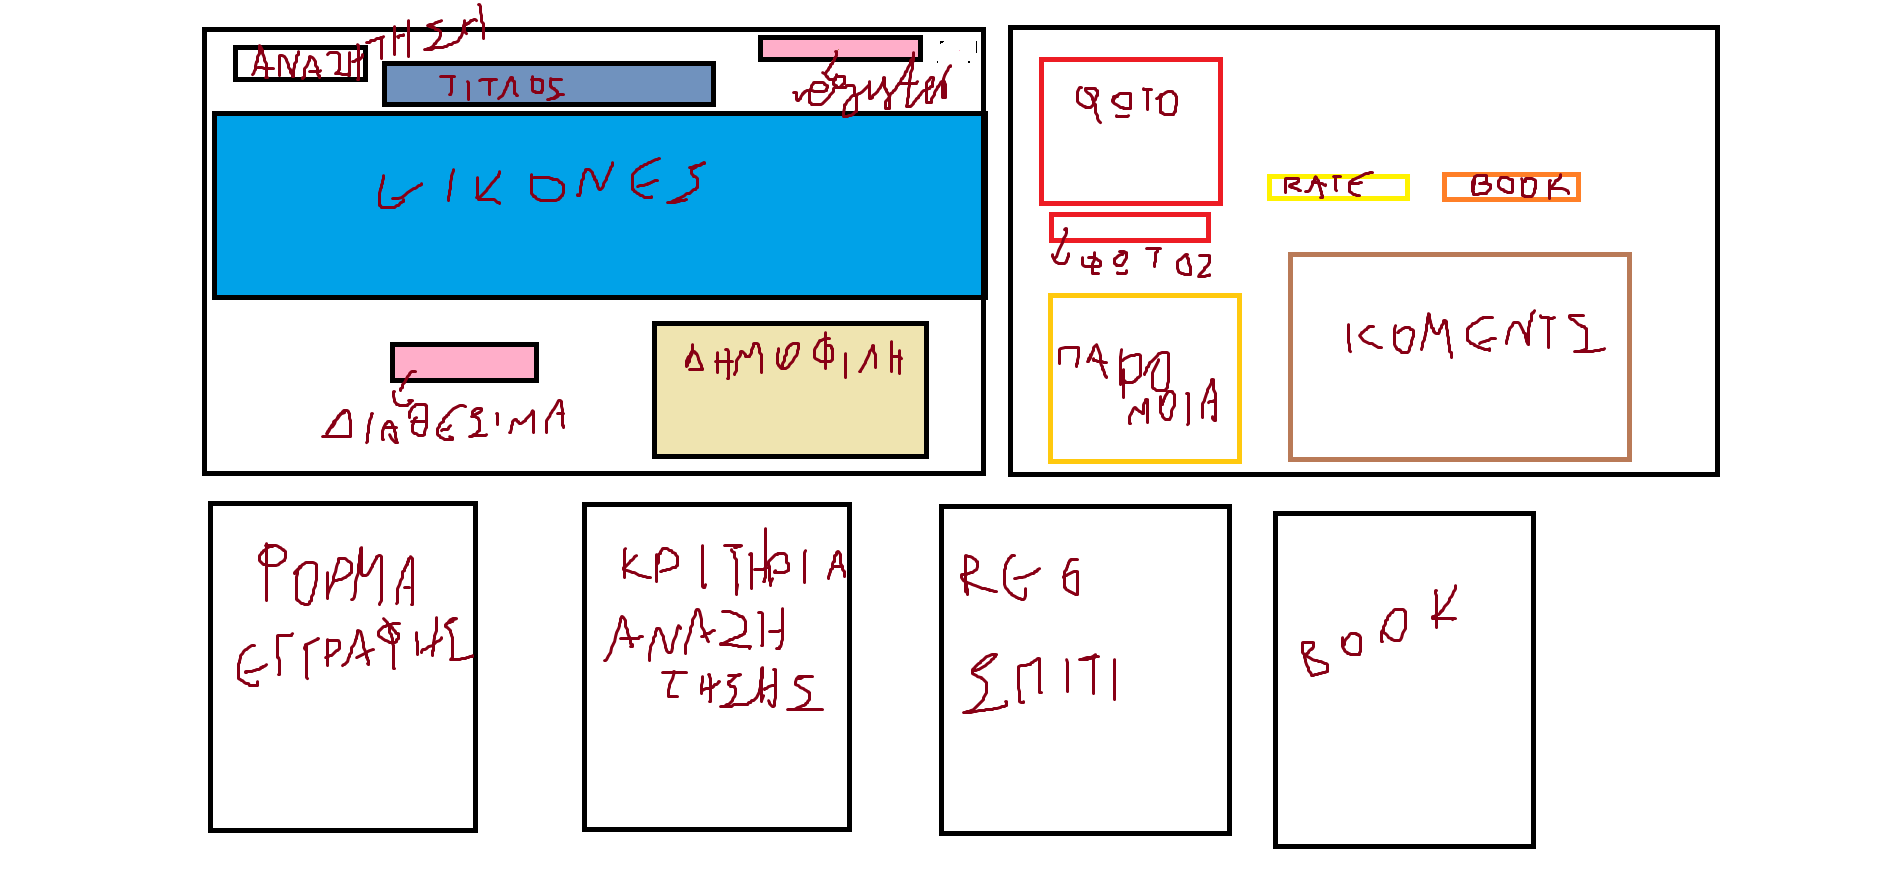 ΑΝΑΖΗΤΗΣΗ
ΤΙΤΛΟΣ
register
ΕΙΚΟΝΕΣ
ΔΙΑΘΕΣΙΜΑ
ΔΗΜΟΦΙΛΗ
ΦΩΤΟ
RATE
BOOK
ΦΩΤΟ2
ΠΑΡΟ
ΜΟΙΑ
ΚΟΜΕΝΤΣ
ΦΟΡΜΑ
ΕΓΓΡΑΦΗΣ
ΚΡΙΤΗΡΙΑ
ΑΝΑΖΗ
ΤΗΣΗΣ
REG
ΣΠΙΤΙ
BOOK